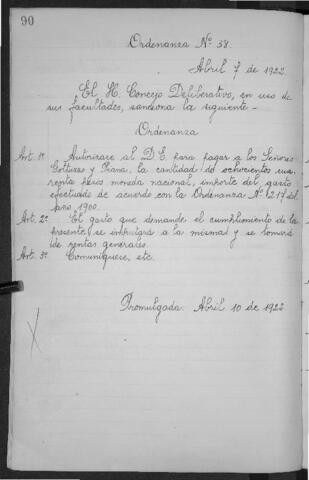 90
Ordenanza Nº 58.
Abril 7 de 1922.
El H. Concejo Deliberativo, en uso de
sus facultades, sanciona la siguiente -
Ordenanza
Art. 1º Autorízase al D.E. para pagar a los Señores
y Prana, la cantidad de ochocientos cua-
renta pesos moneda nacional, importe del gasto
efectuado de acuerdo con la Ordenanza Nº 217 del
año 1900.
Art. 2º El gasto que demande el cumplimiento de la
presente se imputará a la misma y se tomará
de rentas generales.
Art. 3º Comuníquese, etc.
Promulgada: Abril 10 de 1922.